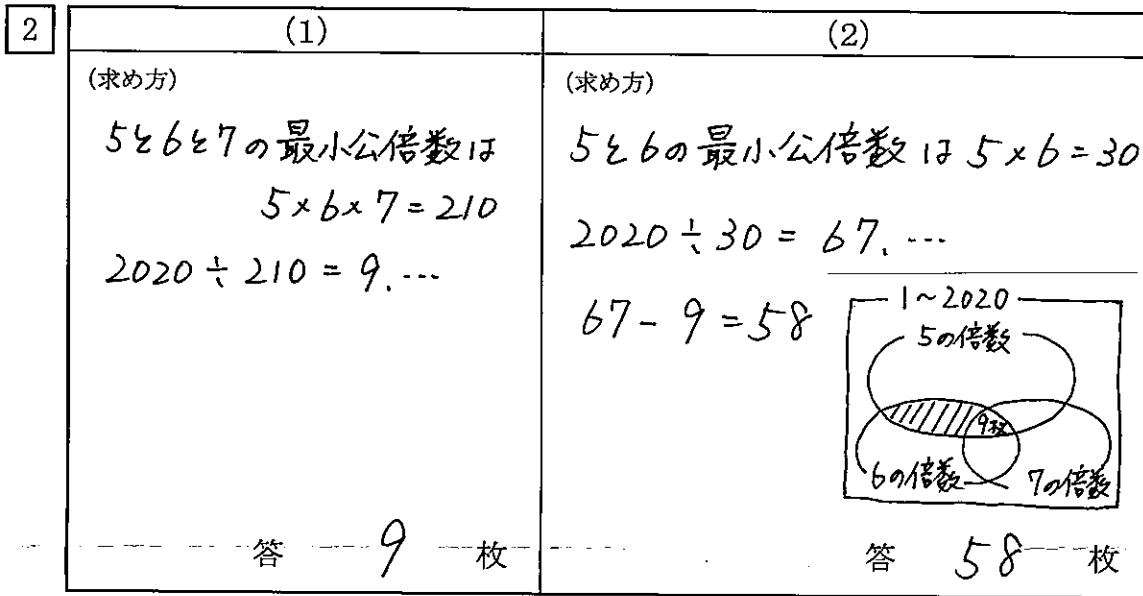 2
(1)
(求め方)
5と6と7の最小公倍数は
5×6×7=210
2020÷210=9.…
答 9 枚
(2)
(求め方)
5と6の最小公倍数は5×6=30
2020÷30=67.…
67-9=58
1~2020
5の倍数
9枚
6の倍数
7の倍数
答 58 枚